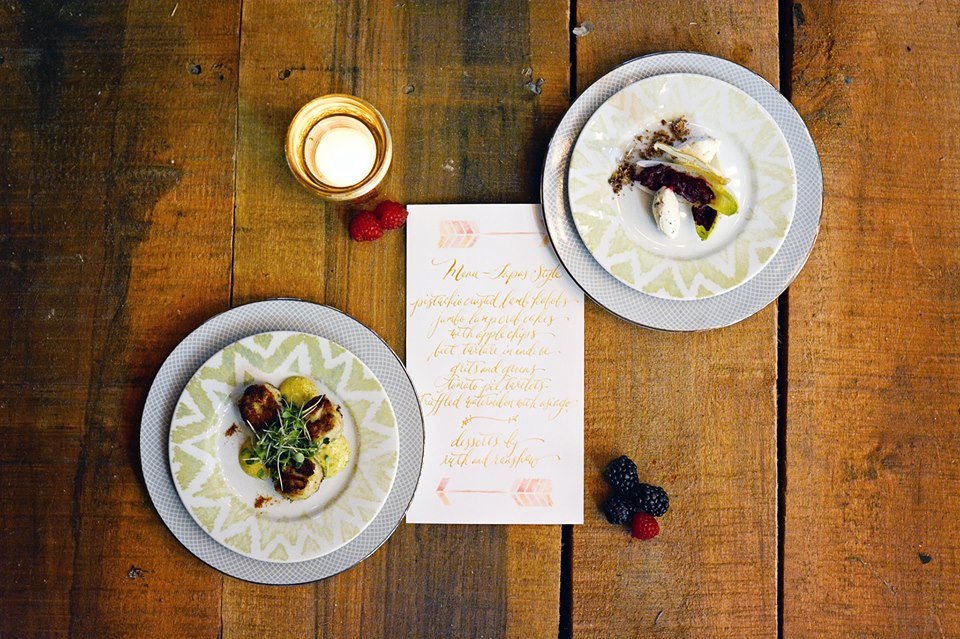 Menu - Tapas Style
pistachio crusted lamb kabobs
jumbo lump crab cakes
with apple chips
beet tartare in endive
grits and greens
tomato pie tartlets
truffled watermelon with asiago
desserts by
earth and